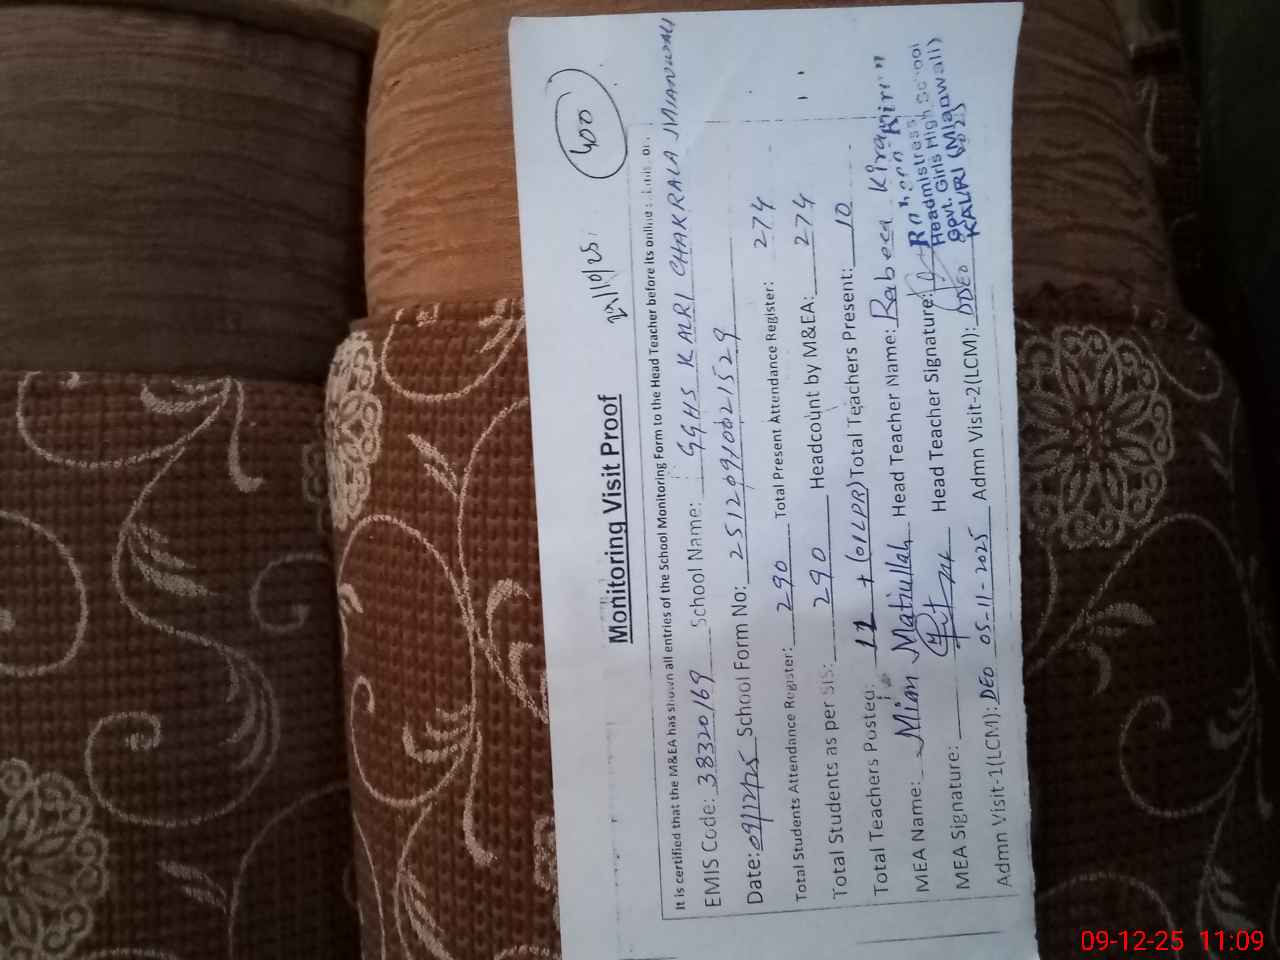 400
Monitoring Visit Proof
It is certified that the M&EA has shown all entries of the School Monitoring Form to the Head Teacher before its online
EMIS Code: 38320169 School Name: GGHS KALRI CHAKRALA MIANWALI
Date: 09/12/25 School Form No: 25120910021529
Total Students Attendance Register: 290 Total Present Attendance Register: 274
Total Students as per SIS: 290 Headcount by M&EA: 274
Total Teachers Posted: 11 + (01LPR) Total Teachers Present: 10
MEA Name: Mian Matiullah Head Teacher Name: Rabeea Kiran
MEA Signature: Head Teacher Signature:
Headmistress
Govt. Girls High School
KALRI (Mianwali)
Admn Visit-1(LCM): DEO 05-11-2025 Admn Visit-2(LCM): DDEO
09-12-25 11:09